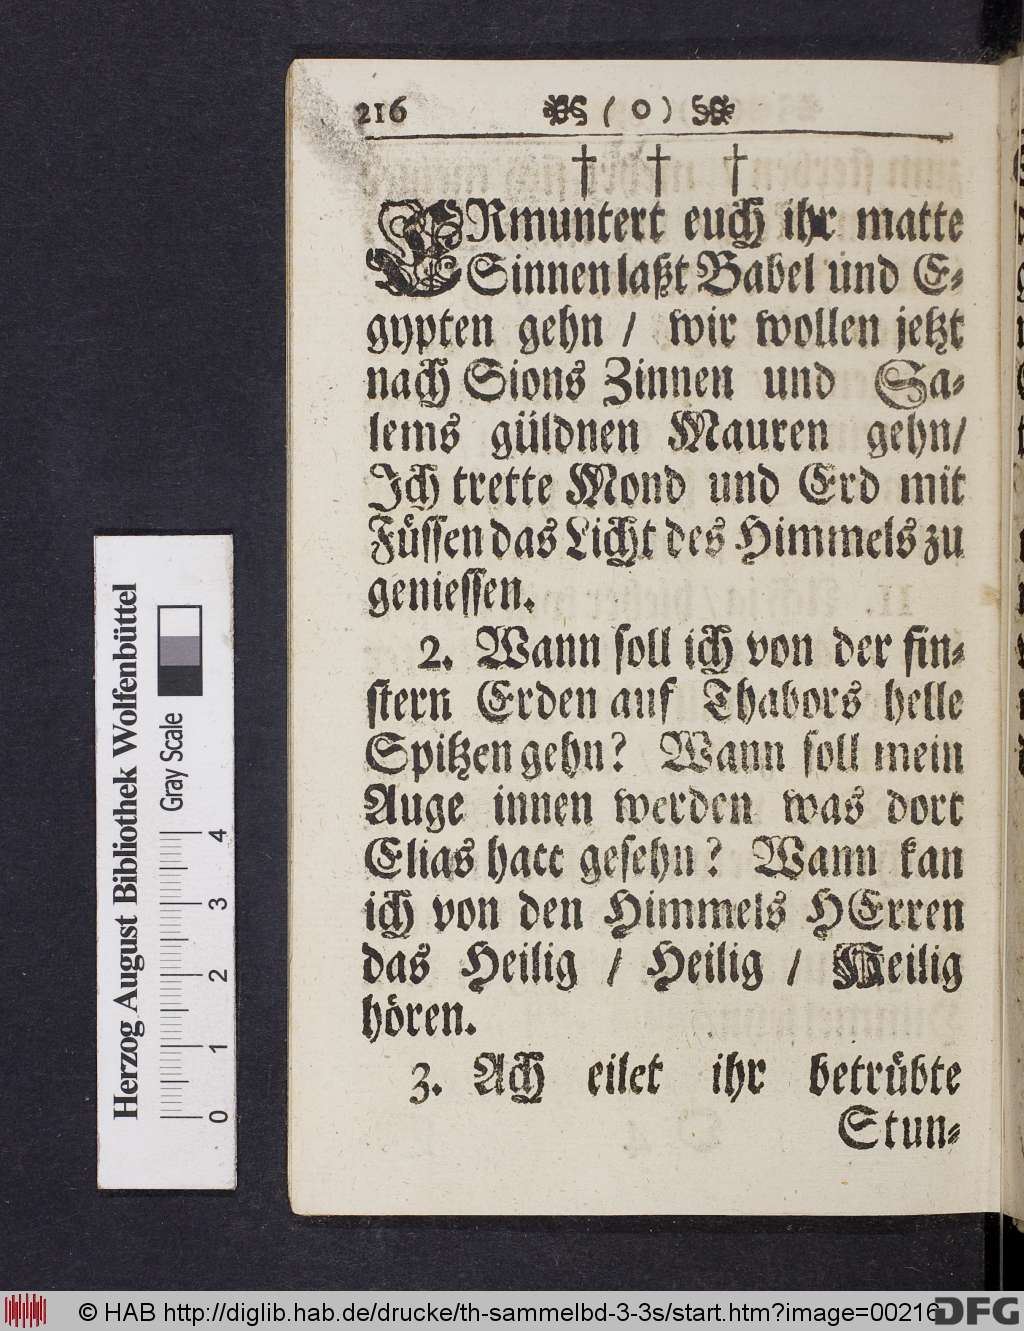 216 ( o )
† † †
ERmuntert euch ihr matte
Sinnen laßt Babel und E-
gypten gehn / wir wollen jetzt
nach Sions Zinnen und Sa-
lems güldnen Mauren gehn/
Ich trette Mond und Erd mit
Füssen das Licht des Himmels zu
geniessen.
2. Wann soll ich von der fin-
stern Erden auf Thabors helle
Spitzen gehn? Wann soll mein
Auge innen werden was dort
Elias hatt gesehn? Wann kan
ich von den Himmels HErren
das Heilig / Heilig / Heilig
hören.
3. Ach eilet ihr betrübte
Stun-
Herzog August Bibliothek Wolfenbüttel
Gray Scale
0 1 2 3 4
© HAB http://diglib.hab.de/drucke/th-sammelbd-3-3s/start.htm?image=00216
DFG